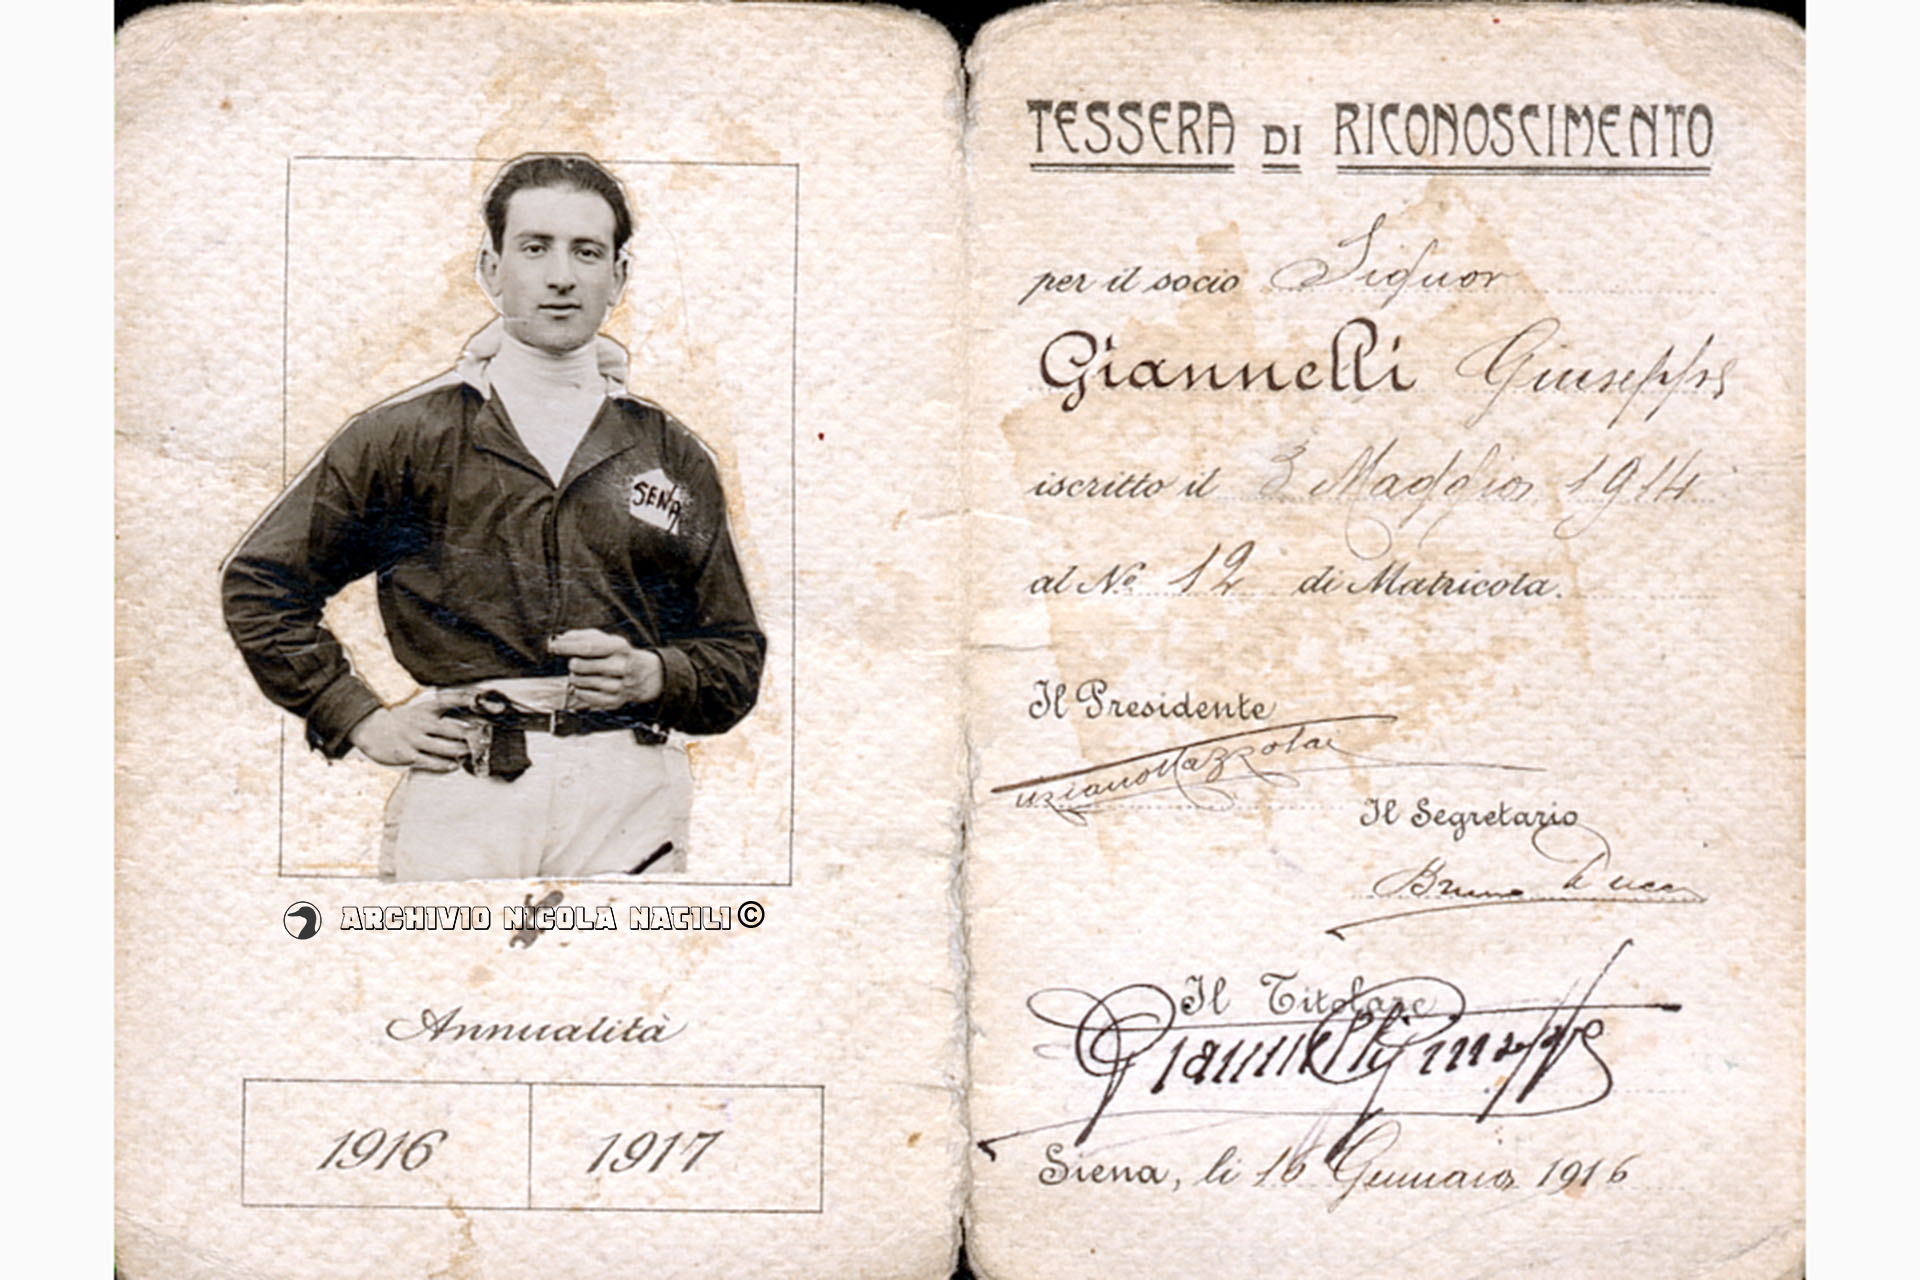 SENA
ARCHIVIO NICOLA NATILI ©
Annualità
1916 1917
TESSERA DI RICONOSCIMENTO
per il socio Signor
Giannelli Giuseppe
iscritto il 3 Maggio 1914
al No 12 di Matricola.
Il Presidente
Mazzola
Il Segretario
Bruno
Il Titolare
Giannelli Giuseppe
Siena, li 16 Gennaio 1916